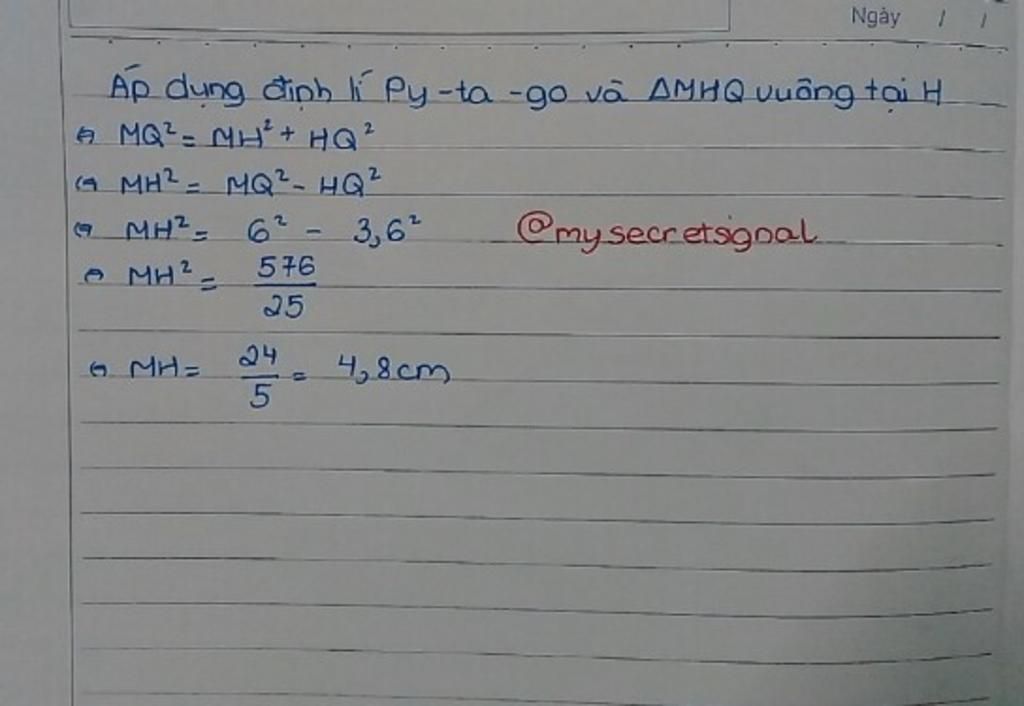 Ngày / /
Áp dụng định lí Py-ta-go và ΔMHQ vuông tại H
⇔ MQ² = MH² + HQ²
⇔ MH² = MQ² - HQ²
⇔ MH² = 6² - 3,6² @mysecretsignal
⇔ MH² = 576/25
⇔ MH = 24/5 = 4,8cm